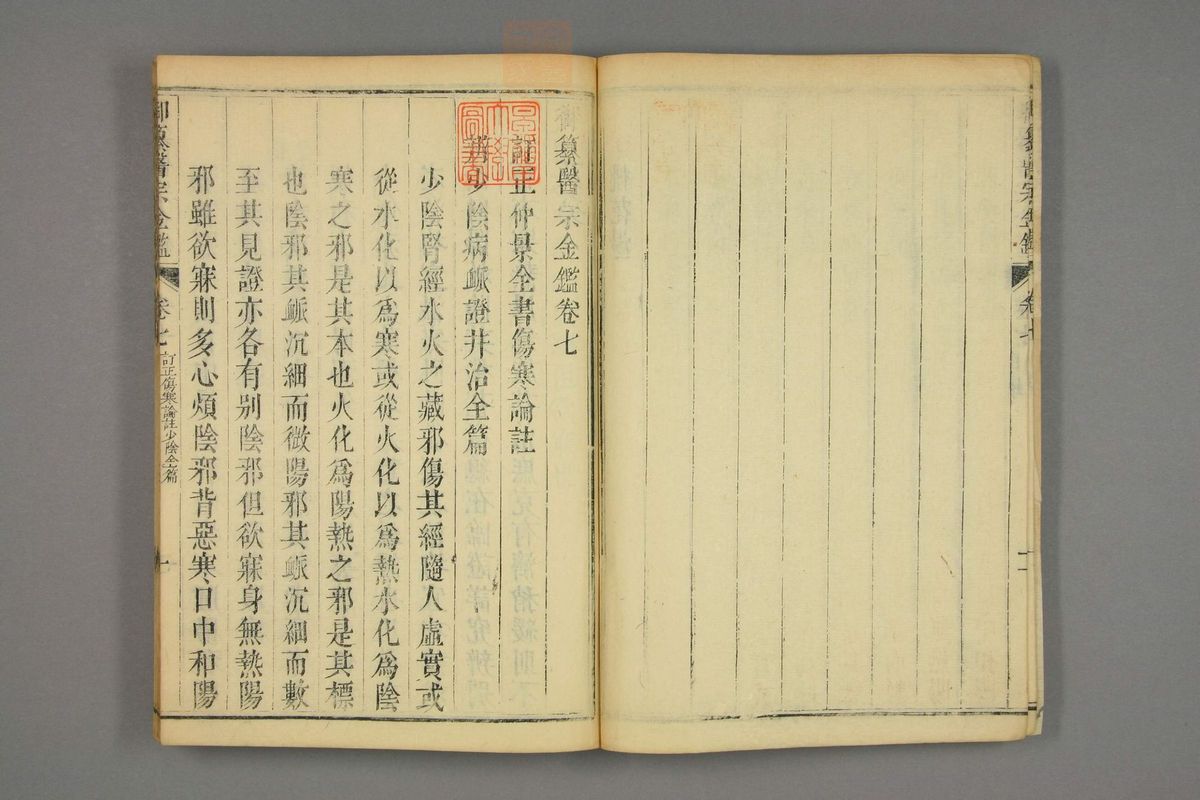 御纂醫宗金鑑
卷七
御纂醫宗金鑑卷七
訂正仲景全書傷寒論註
辨少陰病脈證并治全篇
少陰腎經水火之藏邪傷其經隨人虛實或
從水化以爲寒或從火化以爲熱水化爲陰
寒之邪是其本也火化爲陽熱之邪是其標
也陰邪其脈沉細而微陽邪其脈沉細而數
至其見證亦各有别陰邪但欲寐身無熱陽
邪雖欲寐則多心煩陰邪背惡寒口中和陽
御纂醫宗金鑑
卷七
訂正傷寒論註少陰全篇
一